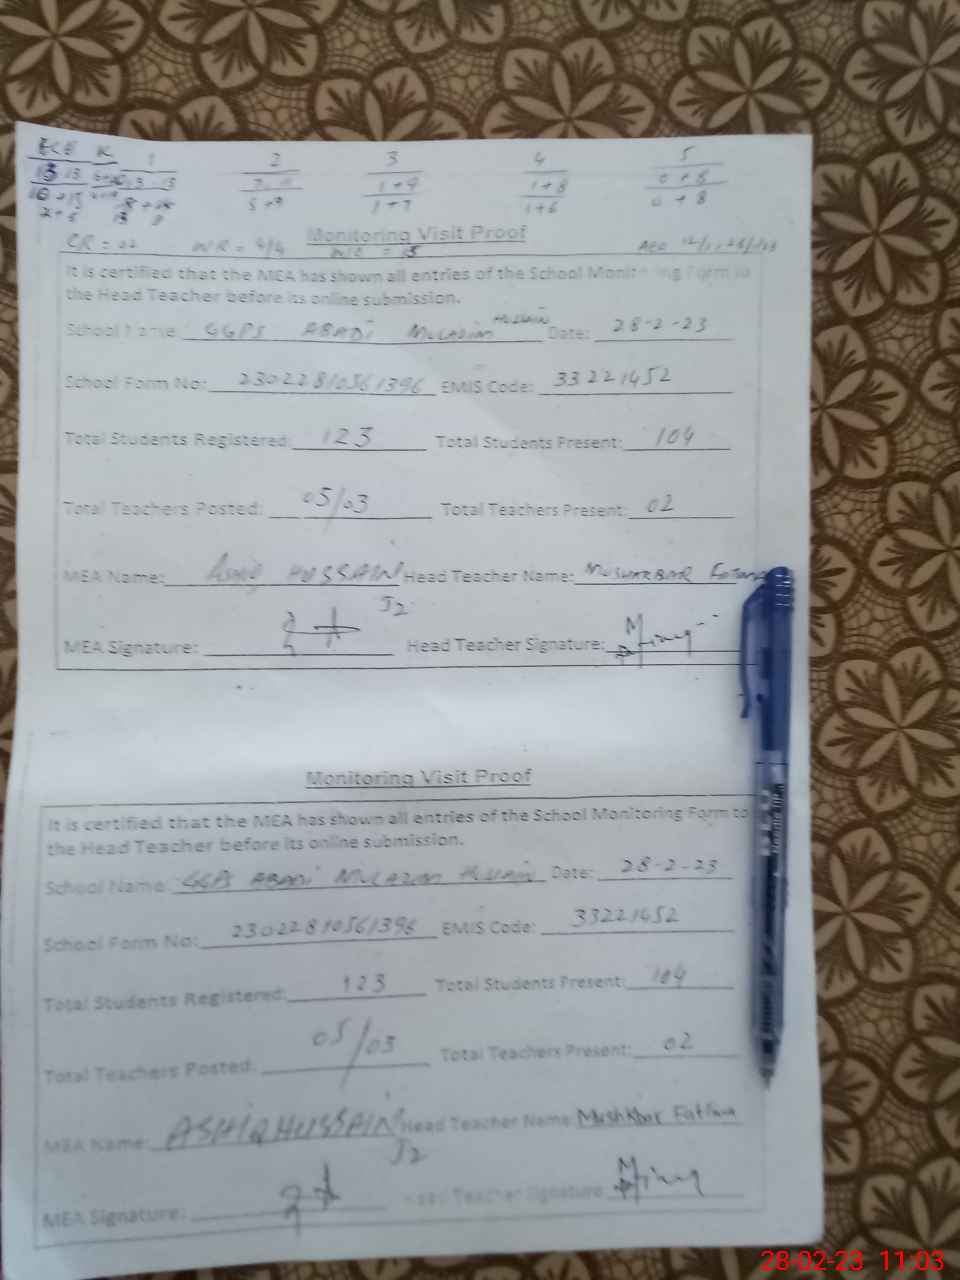 ECE K 1 2 3 4 5
13 13 1+9 1+8 0+8
5+9 1+7 1+6 0+8
CR = 02 WR = 4/4
Monitoring Visit Proof
= 15
It is certified that the MEA has shown all entries of the School Monitoring Form to
the Head Teacher before its online submission.
School Name: GGPS ABADI MULAZIM HUSSAIN Date: 28-2-23
School Form No: 23022810561396 EMIS Code: 33221452
Total Students Registered: 123 Total Students Present: 104
Total Teachers Posted: 05/03 Total Teachers Present: 02
MEA Name: ASHIQ HUSSAIN Head Teacher Name: MUSHKBAR Fatima
J2
MEA Signature: Head Teacher Signature:
Monitoring Visit Proof
It is certified that the MEA has shown all entries of the School Monitoring Form to
the Head Teacher before its online submission.
School Name: GGPS ABADI MULAZIM HUSSAIN Date: 28-2-23
School Form No: 23022810561396 EMIS Code: 33221452
Total Students Registered: 123 Total Students Present: 104
Total Teachers Posted: 05/03 Total Teachers Present: 02
MEA Name: ASHIQ HUSSAIN Head Teacher Name: Mushkbar Fatima
J2
MEA Signature: Head Teacher Signature:
28-02-23 11:03